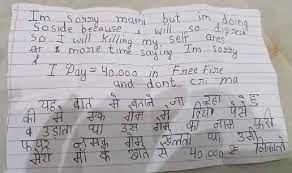 Im sorry mami but im doing
soside because i will so dipresd
so I will killing my self ares
& more time saying Im sorry
I Pay = 40.000 in Free Fire
and dont cri ma
यह बात मे बताने जा रहा हु
की मे एक गेम मे पैसे
उडाता था उस गेम का नाम फ्री
फायर गेम खेलता था उसी
मेरी माँ के खाते से 40.000 ₹ निकाले